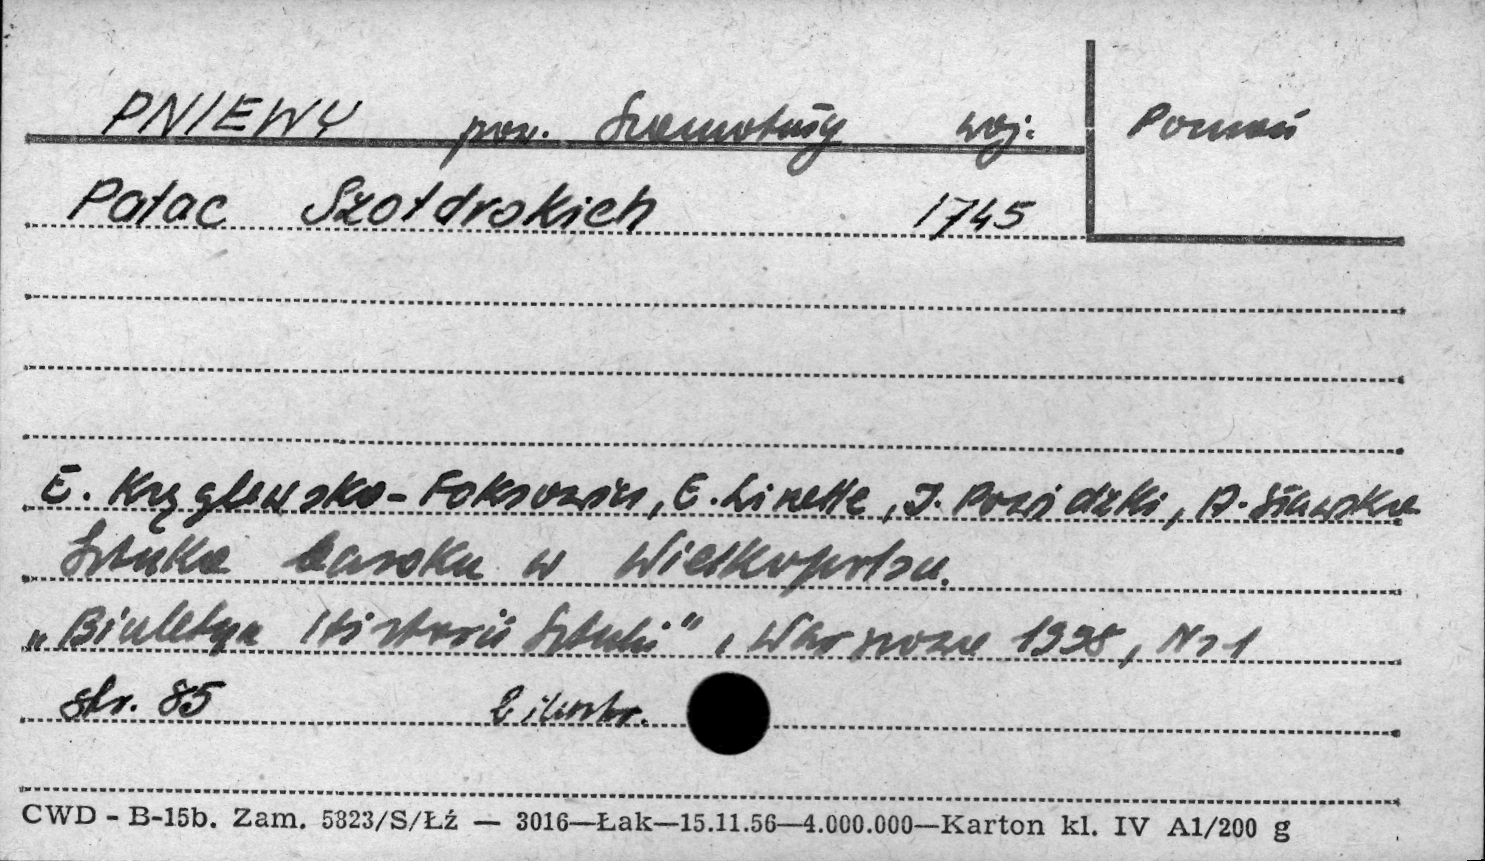 PNIEWY pow. Szamotuły woj: Poznań
Pałac Szołdrskich 1745
E. Kręglewska-Foksowicz, E. Linette, J. Powidzki, A. Sławska
Sztuka baroku w Wielkopolsu.
„Biuletyn Historii Sztuki", Warszawa 1958, Nr 1
str. 85 z ilustr.
CWD - B-15b. Zam. 5823/S/Łź — 3016—Łak—15.11.56—4.000.000—Karton kl. IV A1/200 g